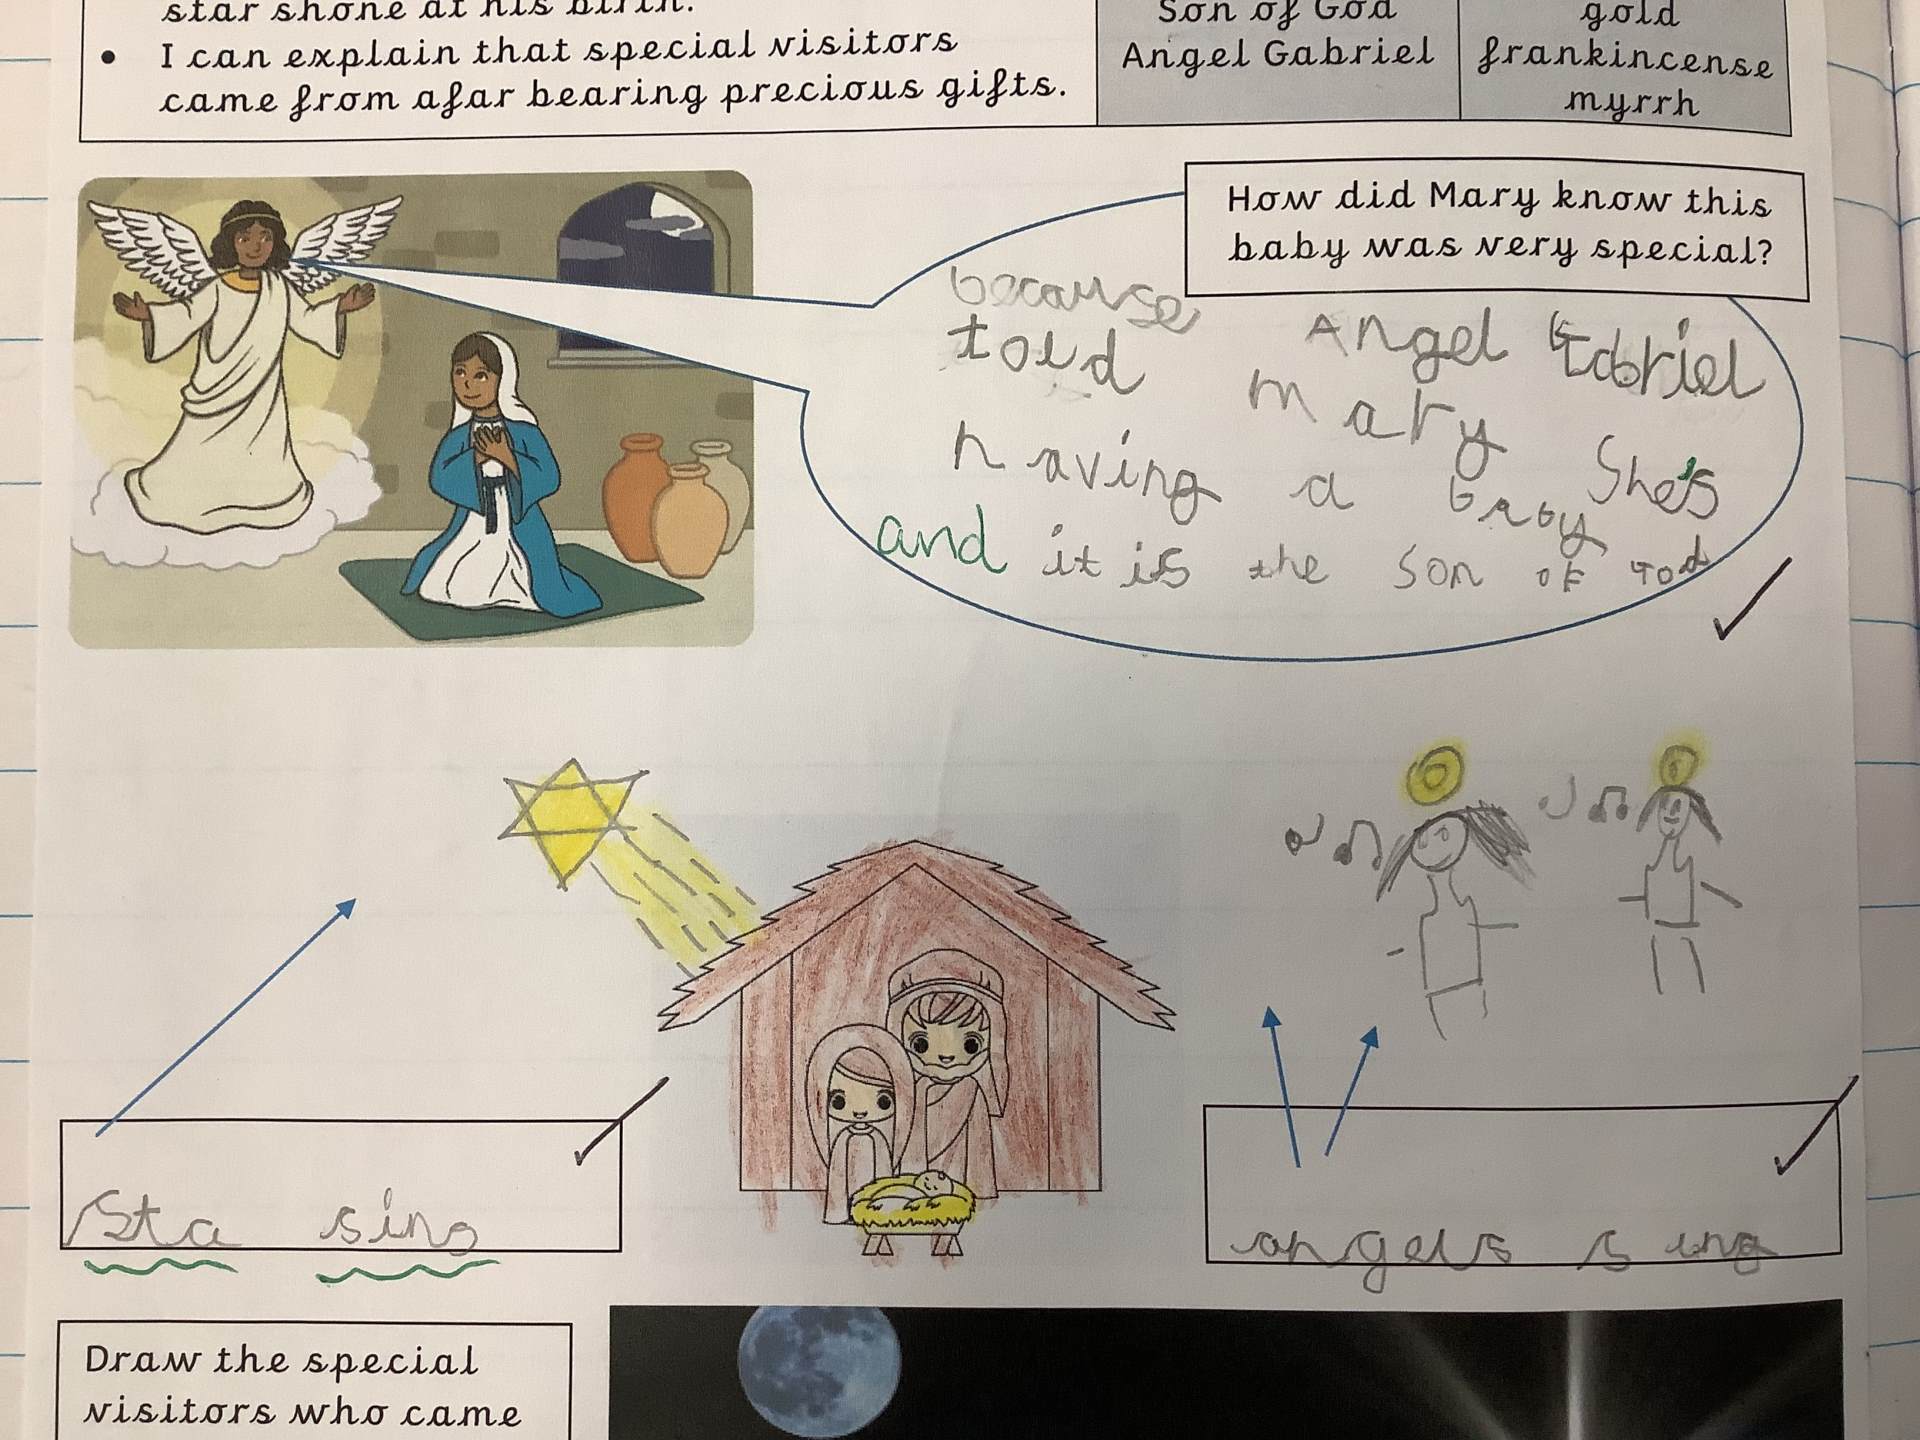 star shone at his birth.
• I can explain that special visitors
came from afar bearing precious gifts.
Son of God
Angel Gabriel
gold
frankincense
myrrh
How did Mary know this
baby was very special?
because Angel Gabriel
told mary She's
having a baby
and it is the son of God
Sta sing
angels sing
Draw the special
visitors who came